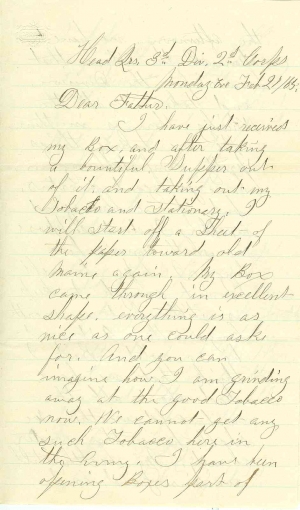 Head Qrs. 3d Div. 2d Corps
Monday Eve Feb
Dear Father.
I have just received
my Box, and after taking
a bountiful Supper out
of it, and taking out my
Tobacco and Stationery, I
will start off a Sheet of
the paper toward old
Maine again. My Box
came through in excellent
shape. everything is as
nice as one could ask
for. And you can
imagine how I am grinding
away at the good Tobacco
now. We cannot get any
such Tobacco here in
the Army. I have been
opening Boxes part of